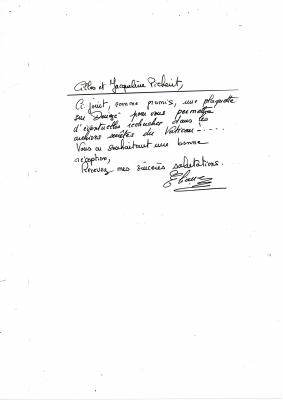 Gilles et Jacqueline Pichent,
Ci joint, comme promis, une plaquette
sur pour vous permettre
d'éventuelles recherches dans les
archives secrètes du Vatican - . . . .
Vous en souhaitant une bonne
réception,
Recevez mes sincères salutations.